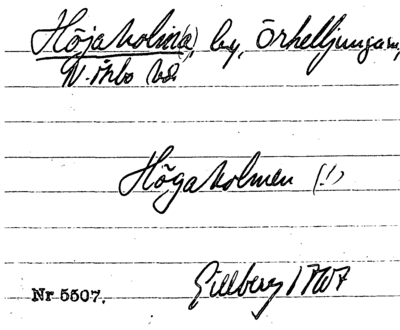 Höjaholm(a), by, Örkelljunga sn,
N. Åsbo hd.
Högaholmen (!)
Gillberg 1767
Nr 5507.